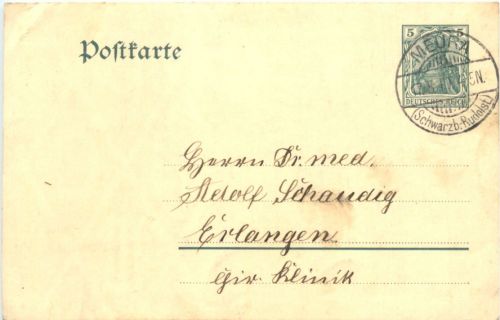 Postkarte
5 5
MEURA
DEUTSCHES REICH
(Schwarzb. Rudolst.)
Herrn Dr. med.
Adolf Schaudig
Erlangen
Klinik